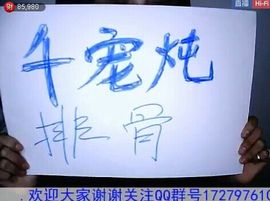 85,980
直播 Hi-Fi
牛宠炖
排骨
，欢迎大家谢谢关注QQ群号172797610